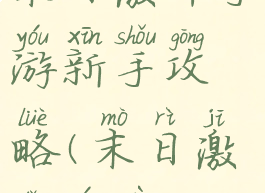 yóu xīn shǒu gōng
游新手攻
lüè mò rì jī
略(末日激